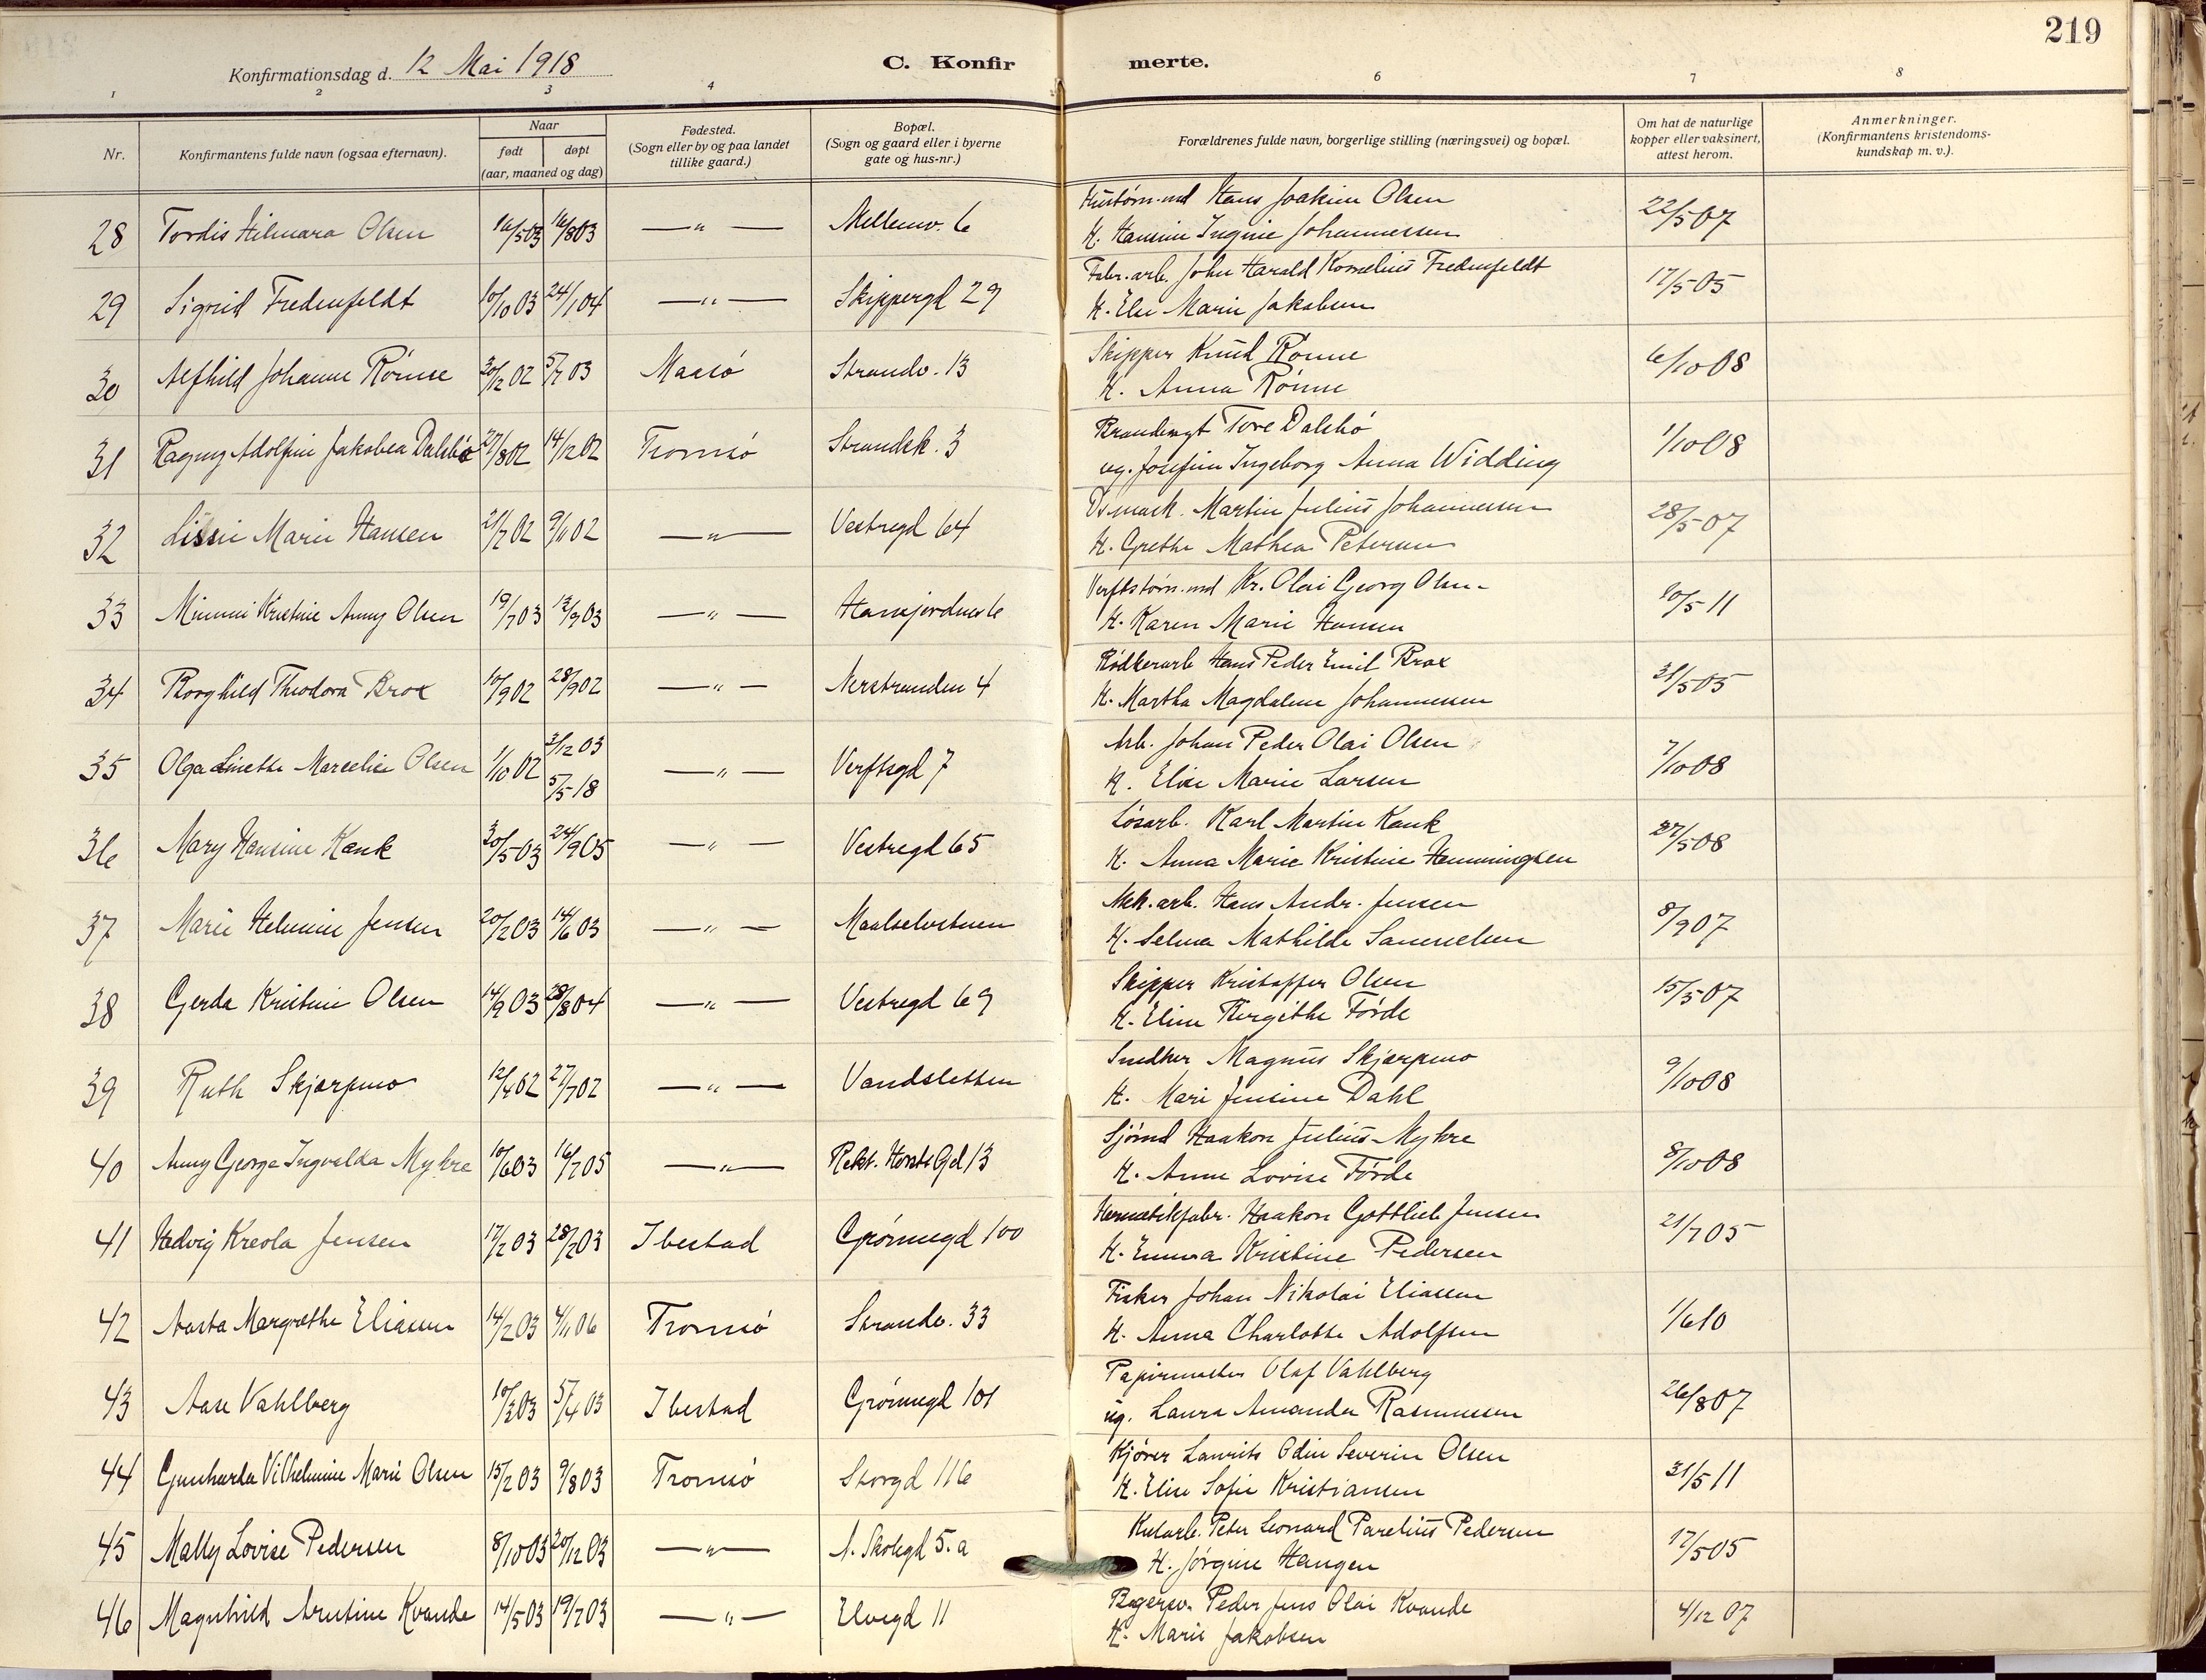 219
Konfirmationsdag d. 12 Mai 1918
C. Konfirmerte.
1 2 3 4 6 7 8
Nr.
Konfirmantens fulde navn (ogsaa efternavn).
Naar
født
døpt
(aar, maaned og dag)
Fødested.
(Sogn eller by og paa landet
tillike gaard.)
Bopæl.
(Sogn og gaard eller i byerne
gate og hus-nr.)
Forældrenes fulde navn, borgerlige stilling (næringsvei) og bopæl.
Om hat de naturlige
kopper eller vaksinert,
attest herom.
Anmerkninger.
(Konfirmantens kristendoms-
kundskap m. v.).
28 Tordis Hilmara Olsen 16/5 03 16/8 03 —"— Mellemv. 6 Hans Joakim Olsen 22/5 07
H. Hansine Ingine Johannessen
29 Sigrid Fredenfeldt 10/10 03 24/1 04 —"— Skippergd 29 Fabr. arb. John Harald Kornelius Fredenfeldt 17/5 05
H. Else Marie Jakobsen
30 Alfhild Johanne Rønne 20/12 02 5/7 03 Maasö Strandv. 13 Skipper Knud Rønne 6/10 08
H. Anna Rønne
31 Ragny Adolfine Jakobea Dalsbö 27/8 02 14/12 02 Tromsö Strandsk. 3 Tore Dalsbö 1/10 08
ug. Josefine Ingeborg Anna Widding
32 Lissie Marie Hansen 21/7 02 9/11 02 —"— Vestregd 64 Martin Julius Johannessen 28/5 07
H. Grethe Mathea Petersen
33 Mimmi Kristine Anny Olsen 19/7 03 13/9 03 —"— Hansjordnes 6 Verftstøm. md Kr. Olai Georg Olsen 20/5 11
H. Karen Marie Hansen
34 Borghild Theodora Brox 10/9 02 28/9 02 —"— Nerstranden 4 Bødkerarb Hans Peder Emil Brox 31/5 05
H. Martha Magdalene Johannessen
35 Olga Linethe Marcelie Olsen 1/10 02 3/12 03 —"— Verftsgd 7 Arb. Johan Peder Olai Olsen 7/10 08
5/5 18 H. Elise Marie Larsen
36 Mary Hansine Kank 30/5 03 24/9 05 —"— Vestregd 65 Løsarb. Karl Martin Kank 27/5 08
H. Anna Marie Kristine Hemmingsen
37 Marie Helmine Jensen 20/2 03 14/6 03 —"— Maalselvstuen Mek. arb. Hans Andr. Jensen 8/9 07
H. Selma Mathilde Samuelsen
38 Gerda Kristine Olsen 14/9 03 28/8 04 —"— Vestregd 69 Skipper Kristoffer Olsen 15/5 07
H. Eline Bergithe Førde
39 Ruth Skjærpmo 12/4 02 27/7 02 —"— Vandsletten Snedker Magnus Skjærpmo 9/10 08
H. Mari Jensine Dahl
40 Anny George Ingvalda Myhre 10/6 03 16/7 05 —"— Rekt. Horsts Gd 13 Sjømd Haakon Julius Myhre 8/10 08
H. Anne Lovise Førde
41 Hedvig Kreola Jensen 17/2 03 28/2 03 Ibestad Grønnegd 100 Hermetikfabr. Haakon Gottlieb Jensen 21/7 05
H. Emma Kristine Pedersen
42 Aasta Margrethe Eliassen 14/2 03 4/11 06 Tromsö Strandv. 33 Fisker Johan Nikolai Eliassen 1/6 10
H. Anna Charlotte Adolfsen
43 Aase Vahlberg 10/3 03 5/4 03 Ibestad Grønnegd 101 Olaf Vahlberg 26/8 07
ug. Laura Amanda Rasmussen
44 Gunharda Vilhelmine Marie Olsen 15/2 03 9/8 03 Tromsö Storgd 116 Kjører Laurits Odin Severin Olsen 31/5 11
H. Elise Sofie Kristiansen
45 Mally Lovise Pedersen 8/10 03 20/12 03 —"— N. Skolegd 5. a Kularb. Peter Leonard Parelius Pedersen 17/5 05
H. Jørgine Haugen
46 Magnhild Arntine Kvande 14/5 03 19/7 03 —"— Elvegd 11 Peder Jens Olai Kvande 4/12 07
H. Marie Jakobsen